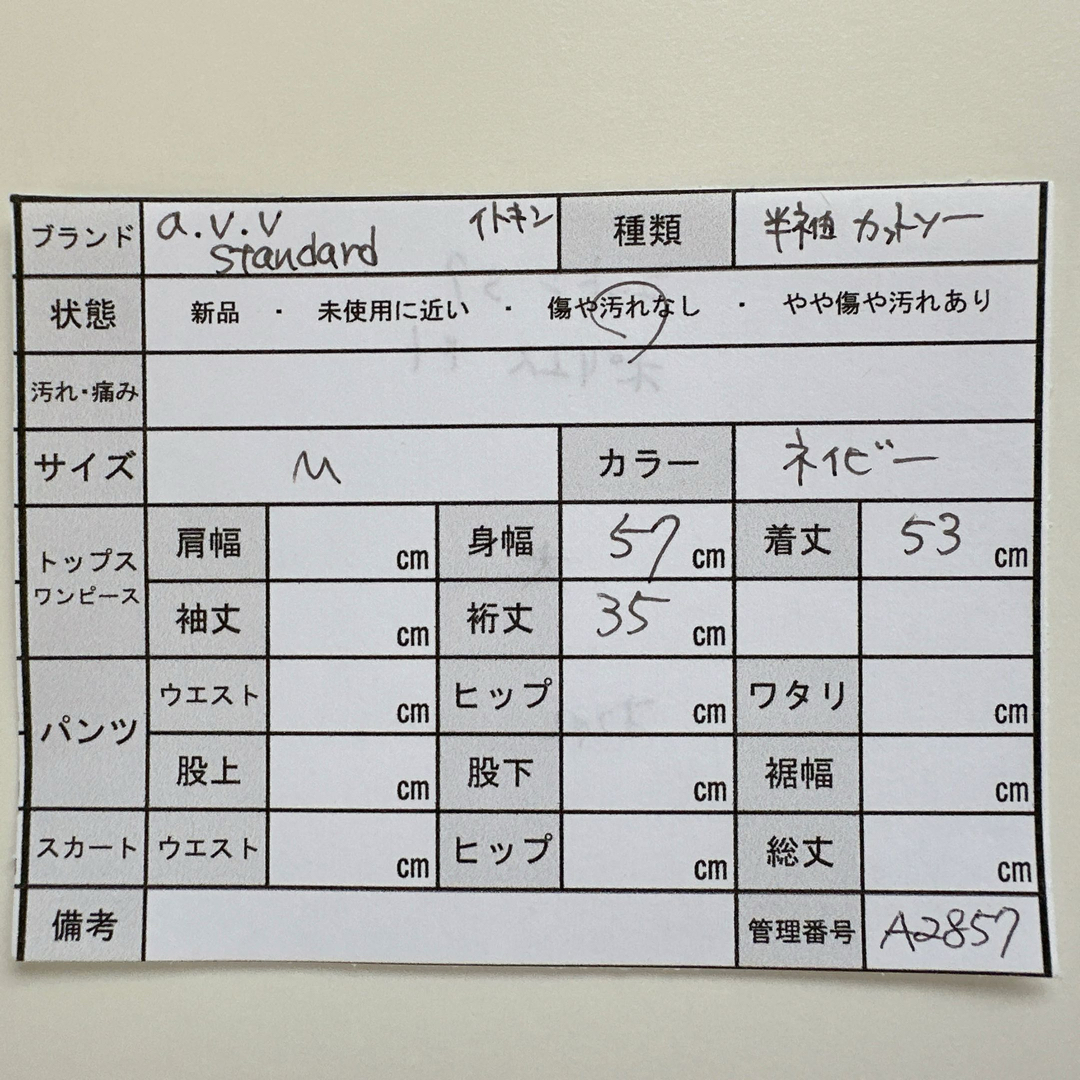 ブランド a.v.v standard イトキン 種類 半袖 カットソー
状態 新品 ・ 未使用に近い ・ 傷や汚れなし ・ やや傷や汚れあり
汚れ・痛み
サイズ M カラー ネイビー
トップス ワンピース 肩幅 cm 身幅 57 cm 着丈 53 cm
袖丈 cm 裄丈 35 cm
パンツ ウエスト cm ヒップ cm ワタリ cm
股上 cm 股下 cm 裾幅 cm
スカート ウエスト cm ヒップ cm 総丈 cm
備考 管理番号 A2857